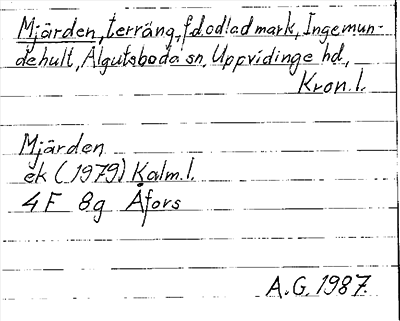 Mjärden, terräng, f.d. odlad mark, Ingemun-
dehult, Älgutsboda sn, Uppvidinge hd,
Kron.l.
Mjärden
ek (1979) Kalm.l.
4F 8g Åfors
A.G. 1987.